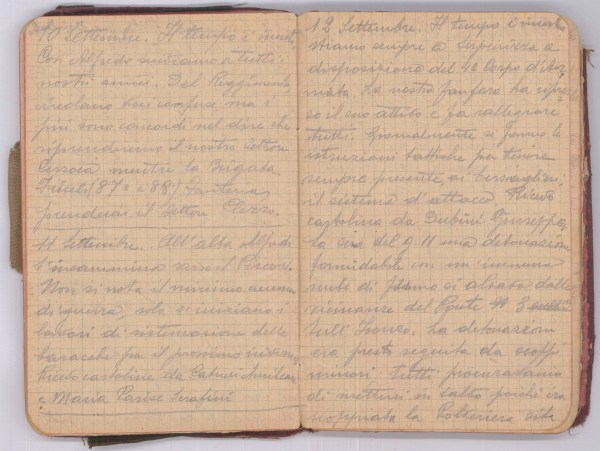 10 Settembre. Il tempo è
Con Alfredo a tutti i
nostri amici. Del Reggimento
circolano voci confuse ma i
più sono concordi nel dire che
riprenderemo il nostro settore
mentre la Brigata
Friuli (87º e 88º) Fanteria
prenderà il settore
11 Settembre. All'alba Alfredo
s'incammina verso il
Non si nota il minimo
di guerra, solo si iniziano i
lavori di sistemazione delle
baracche per il prossimo inverno
Ricevo cartoline da
e Maria Parise Serafini
12 Settembre. Il tempo è
Stiamo sempre a Serpenizza a
disposizione del 4º Corpo d'Ar-
mata. La nostra fanfara ha ripre-
so il suo attivo e fa rallegrare
tutti. Giornalmente si fanno le
istruzioni tattiche per tenere
sempre presente ai bersaglieri
il sistema d'attacco. Ricevo
cartolina da Giuseppe
La sera del g. 11 una detonazione
formidabile con un'immensa
nube di fumo si alzava dalle
vicinanze del Ponte Nº 3
sull'Isonzo. La detonazione
era presto seguita da scoppi
minori tutti procuravamo
di metterci in salvo poichè era
scoppiata la Polveriera